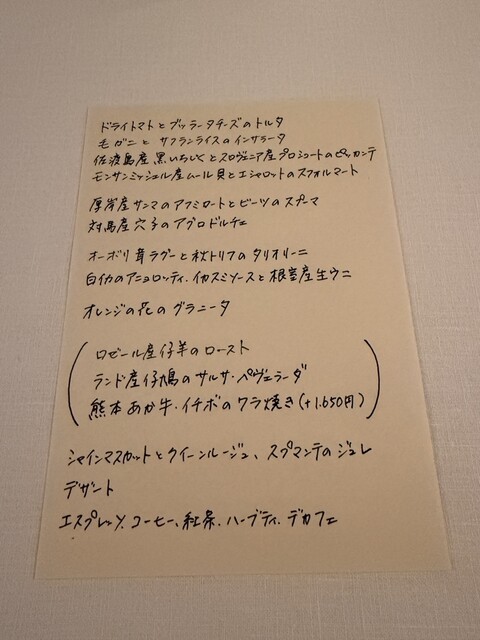 ドライトマトとブッラータチーズのトルタ
毛ガニとサフランライスのインサラータ
佐渡島産黒いちじくとスロヴェニア産プロシュートのピッカンテ
モンサンミッシェル産ムール貝とエシャロットのスフォルマート
厚岸産サンマのアフミカートとビーツのスプーマ
対馬産穴子のアグロドルチェ
オーボリ茸ラグーと秋トリフのタリオリーニ
白イカのアニョロッティ、イカスミソースと根室産生ウニ
オレンジの花のグラニータ
ロゼール産仔羊のロースト
ランド産仔鳩のサルサ・ペヴェラーダ
熊本あか牛・イチボのワラ焼き(+1.650円)
シャインマスカットとクイーンルージュ、スプマンテのジュレ
デザート
エスプレッソ、コーヒー、紅茶、ハーブティ、デカフェ